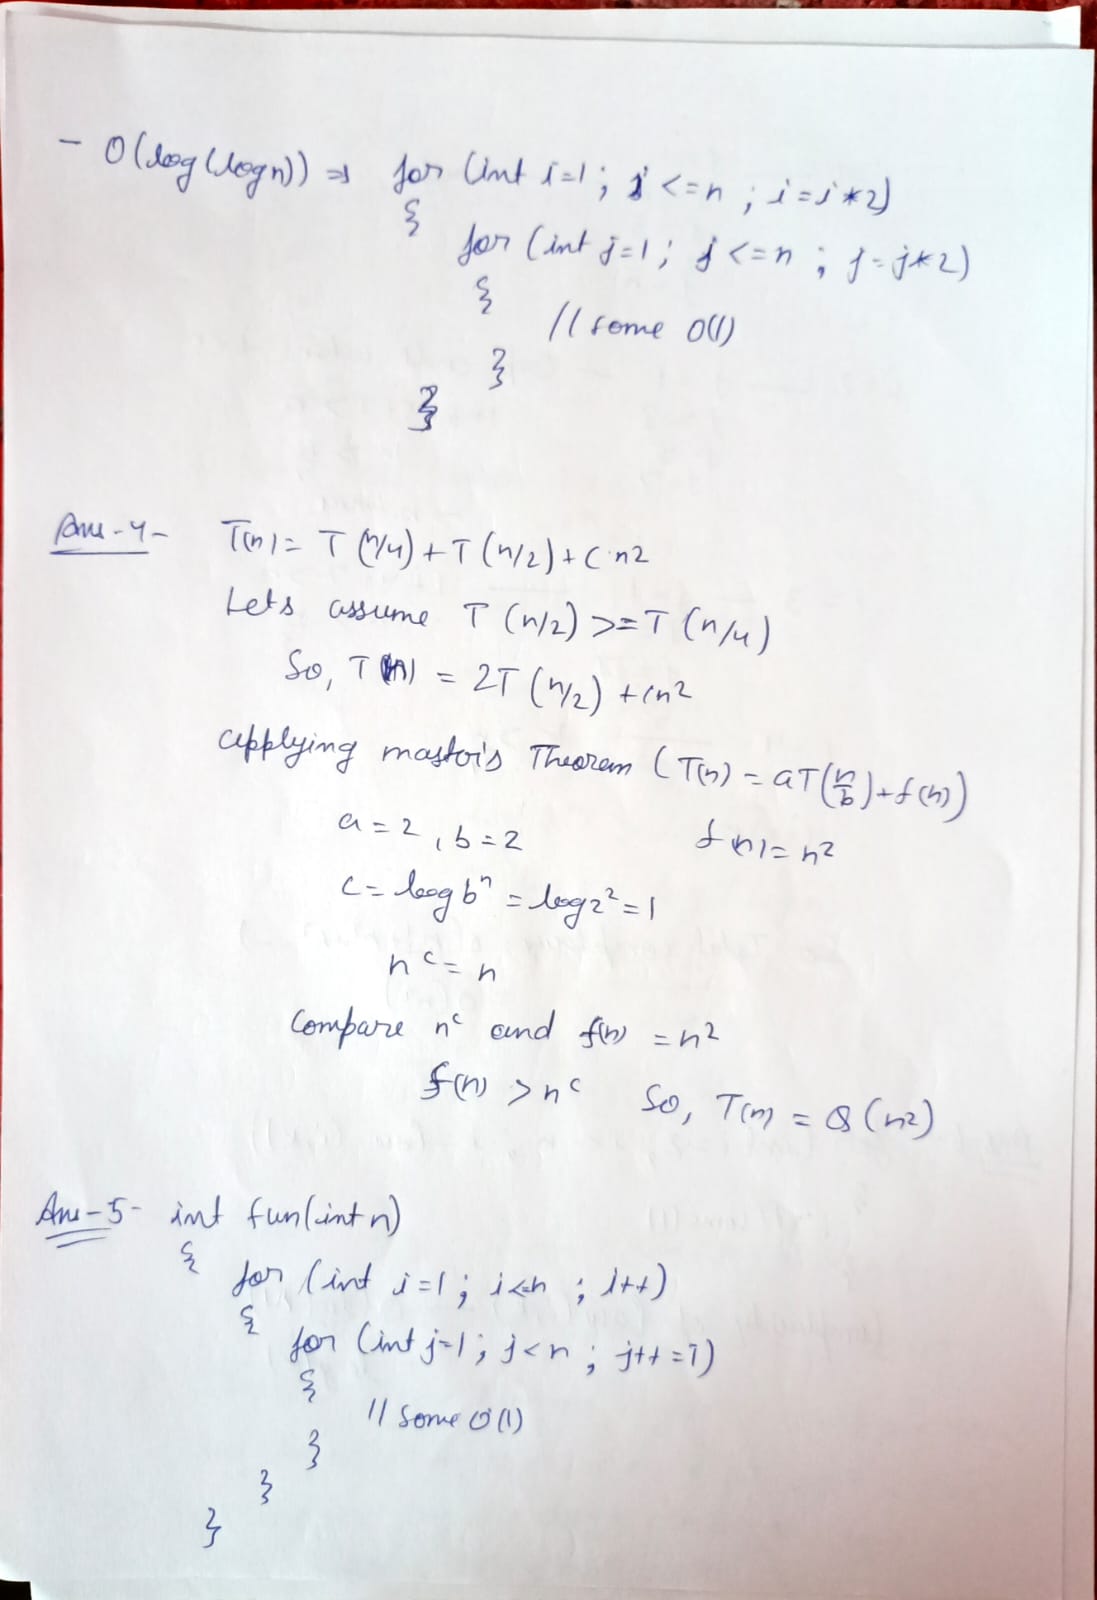 - O(log(logn)) => for (int i=1; i<=n; i=i*2)
{
for (int j=1; j<=n; j=j*2)
{
// some O(1)
}
}
Ans-4- T(n) = T(n/4) + T(n/2) + C·n2
Lets assume T(n/2) >= T(n/4)
So, T(n) = 2T(n/2) + cn²
applying mastor's Theorem (T(n) = aT(n/b) + f(n))
a=2, b=2 f(n)=n²
c = log bⁿ = log 2² = 1
n c = n
Compare nᶜ and f(n) = n²
f(n) > nᶜ So, T(n) = Q(n²)
Ans-5- int fun(int n)
{
for (int i=1; i<=n; i++)
{
for (int j=1; j<n; j++=i)
{
// Some O(1)
}
}
}